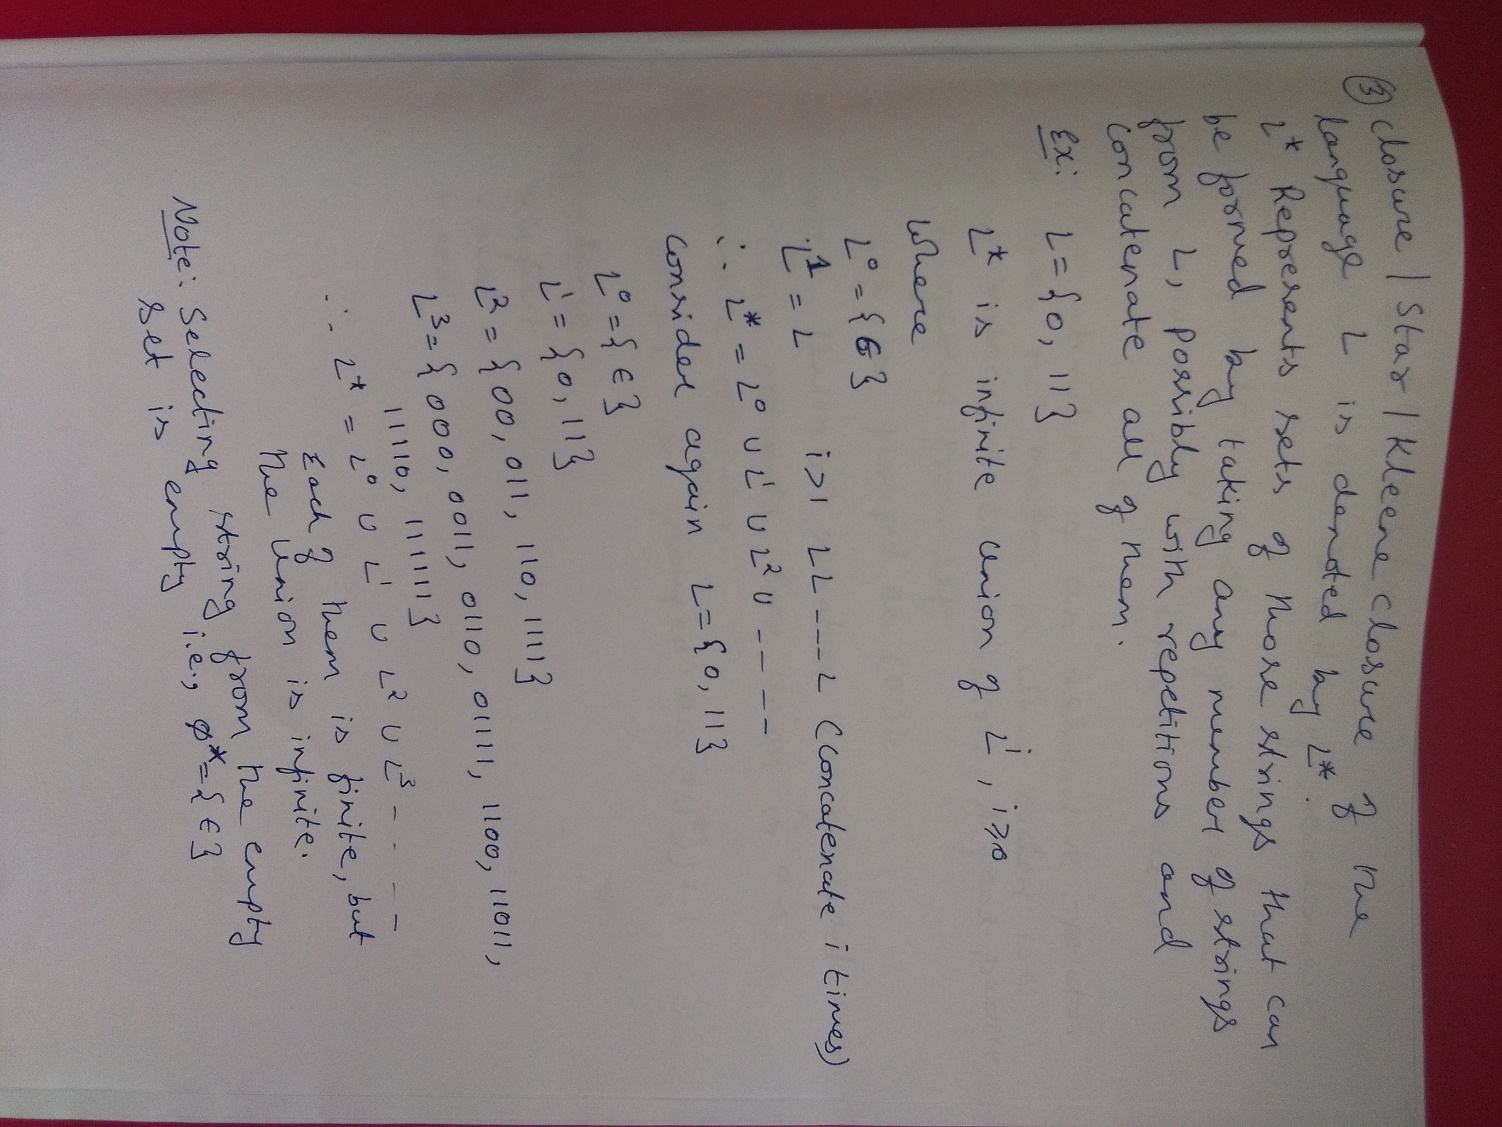 ③ Closure / Star / Kleene closure of the
language L is denoted by L*.
L* Represents sets of those strings that can
be formed by taking any number of strings
from L, possibly with repetitions and
concatenate all of them.
Ex: L={0, 11}
L* is infinite union of Lⁱ, i≥0
Where
L⁰ = {ϵ}
L¹ = L i>1 LL --- L (Concatenate i times)
∴ L* = L⁰ ∪ L¹ ∪ L² ∪ ----
Consider again L={0, 11}
L⁰={ϵ}
L¹={0, 11}
L² = {00, 011, 110, 1111}
L³={000, 0011, 0110, 01111, 1100, 11011,
11110, 111111}
∴ L* = L⁰ ∪ L¹ ∪ L² ∪ L³ ----
Each of them is finite, but
the union is infinite.
Note: Selecting string from the empty
set is empty i.e., ϕ*={ϵ}